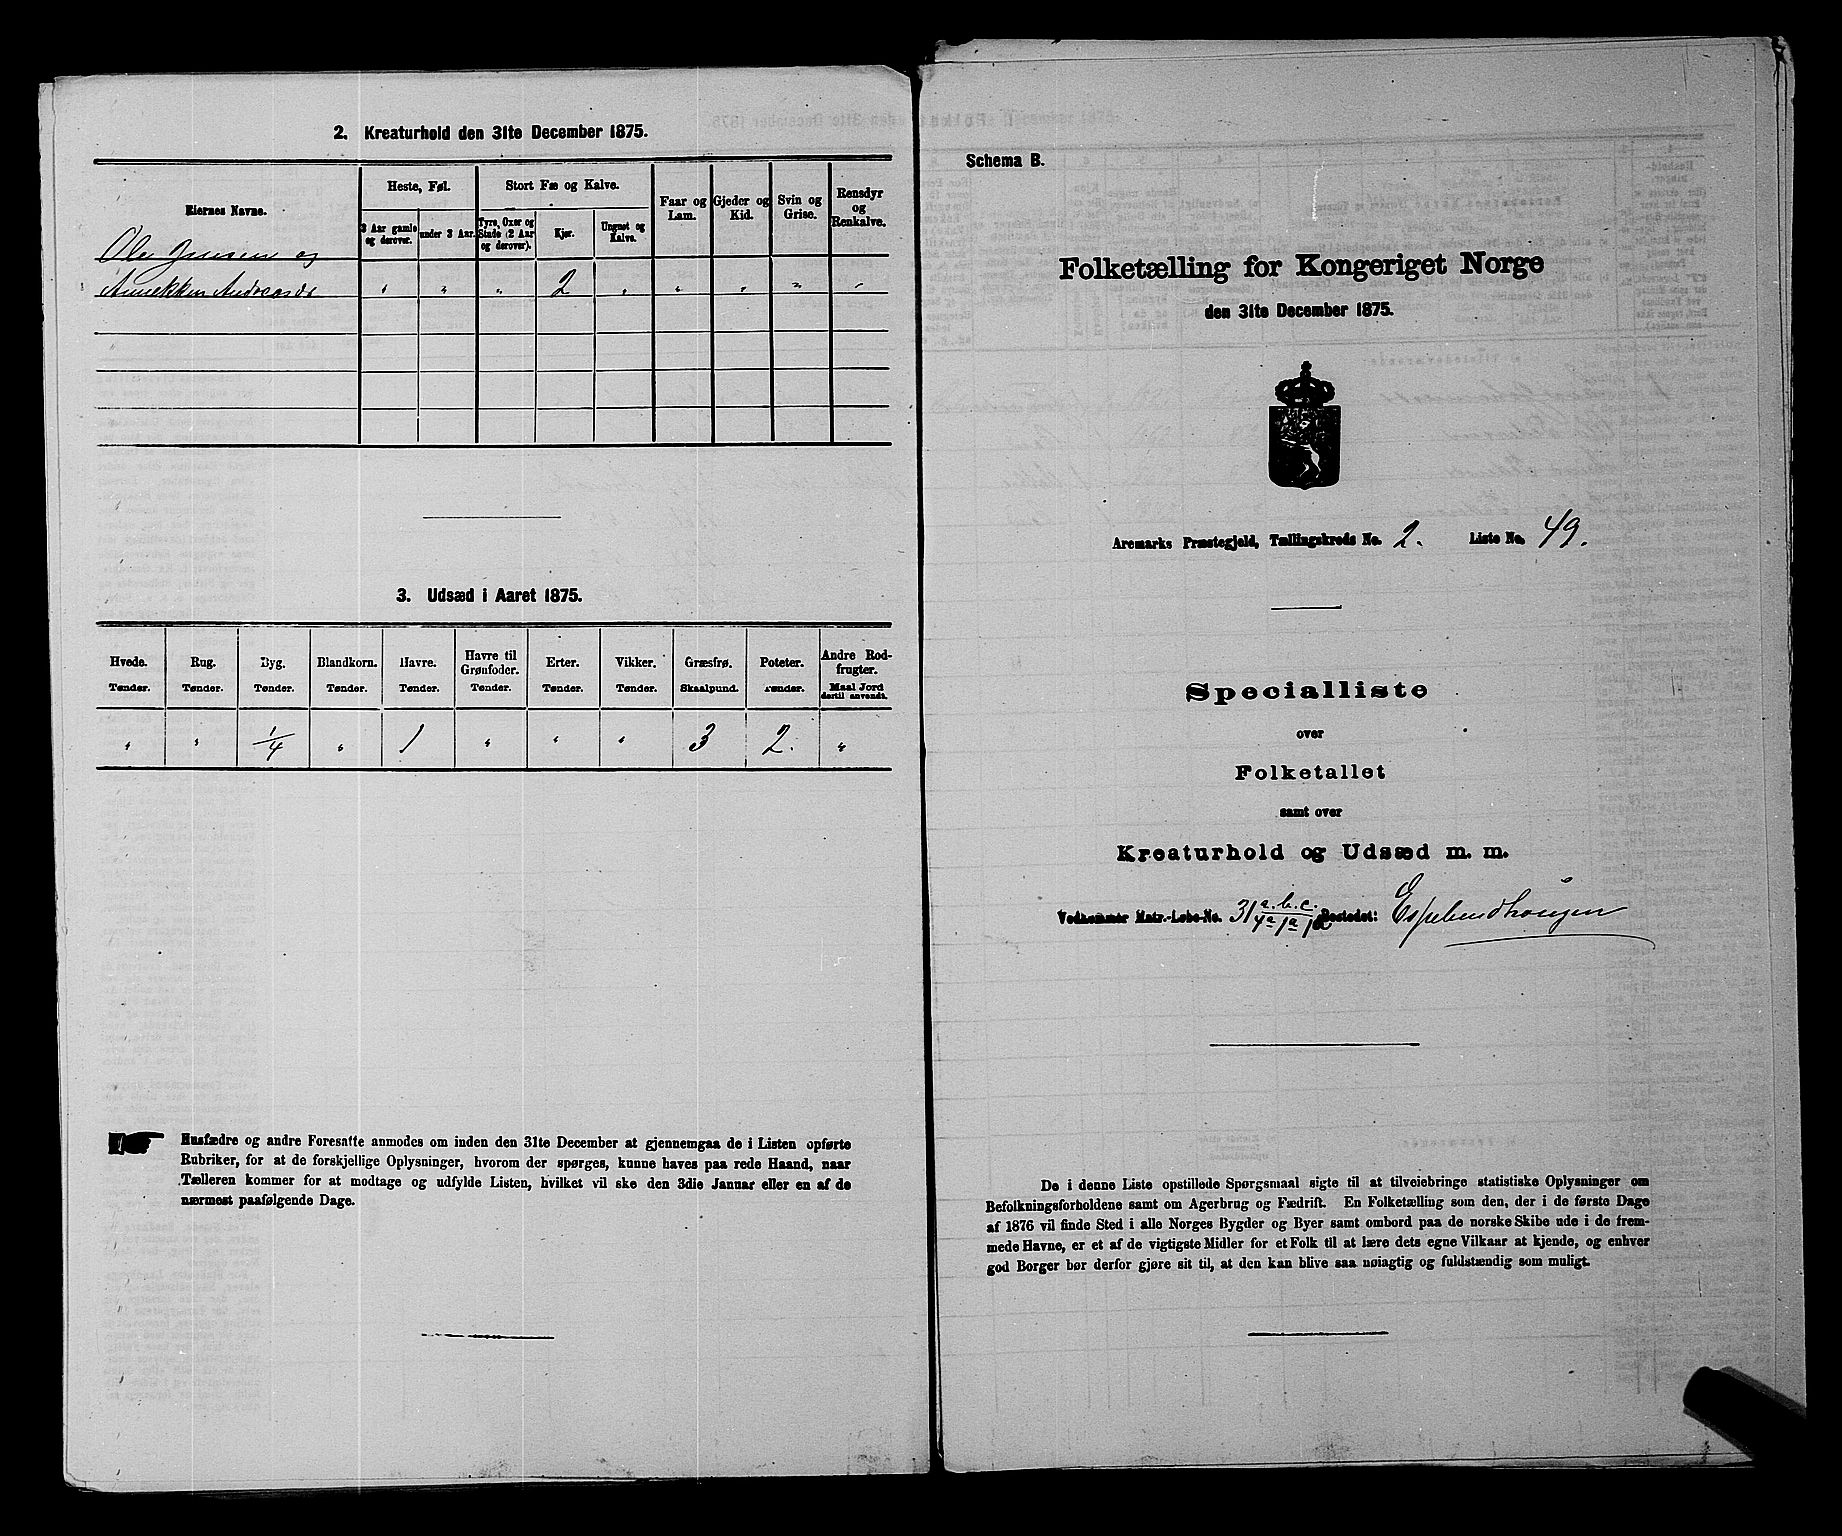 2. Kreaturhold den 31te December 1875.
Eiernes Navne.
Heste, Føl.
3 Aar gamle og derover.
under 3 Aar.
Stort Fæ og Kalve.
Tyre, Oxer og Stude (2 Aar og derover).
Kjør.
Ungnet og Kalve.
Faar og Lam.
Gjeder og Kid.
Svin og Grise.
Rensdyr og Renkalve.
Ole Jensen og
Annekken " " " 2 " " " " "
3. Udsæd i Aaret 1875.
Hvede. Rug. Byg. Blandkorn. Havre. Havre til Grønfoder. Erter. Vikker. Græsfrø. Poteter. Andre Rodfrugter.
Tønder. Tønder. Tønder. Tønder. Tønder. Tønder. Tønder. Tønder. Skaalpund. Tønder. Maal Jord dertil anvendt.
" " 1/4 " 1 " " " 3 2. "
Husfædre og andre Foresatte anmodes om inden den 31te December at gjennemgaa de i Listen opførte
Rubriker, for at de forskjellige Oplysninger, hvorom der spørges, kunne haves paa rede Haand, naar
Tælleren kommer for at modtage og udfylde Listen, hvilket vil ske den 3die Januar eller en af de
nærmest paafølgende Dage.
Schema B.
Folketælling for Kongeriget Norge
den 31te December 1875.
Aremarks Præstegjeld, Tællingskreds No. 2. Liste No. 49.
Specialliste
over
Folketallet
samt over
Kreaturhold og Udsæd m. m.
Vedkommer Matr.-Løbe-No. 31 a.b.c. Bostedet: Espelundhaugen
De i denne Liste opstillede Spørgsmaal sigte til at tilveiebringe statistiske Oplysninger om
Befolkningsforholdene samt om Agerbrug og Fædrift. En Folketælling som den, der i de første Dage
af 1876 vil finde Sted i alle Norges Bygder og Byer samt ombord paa de norske Skibe ude i de frem-
mede Havne, er et af de vigtigste Midler for et Folk til at lære dets egne Vilkaar at kjende, og enhver
god Borger bør derfor gjøre sit til, at den kan blive saa nøiagtig og fuldstændig som muligt.